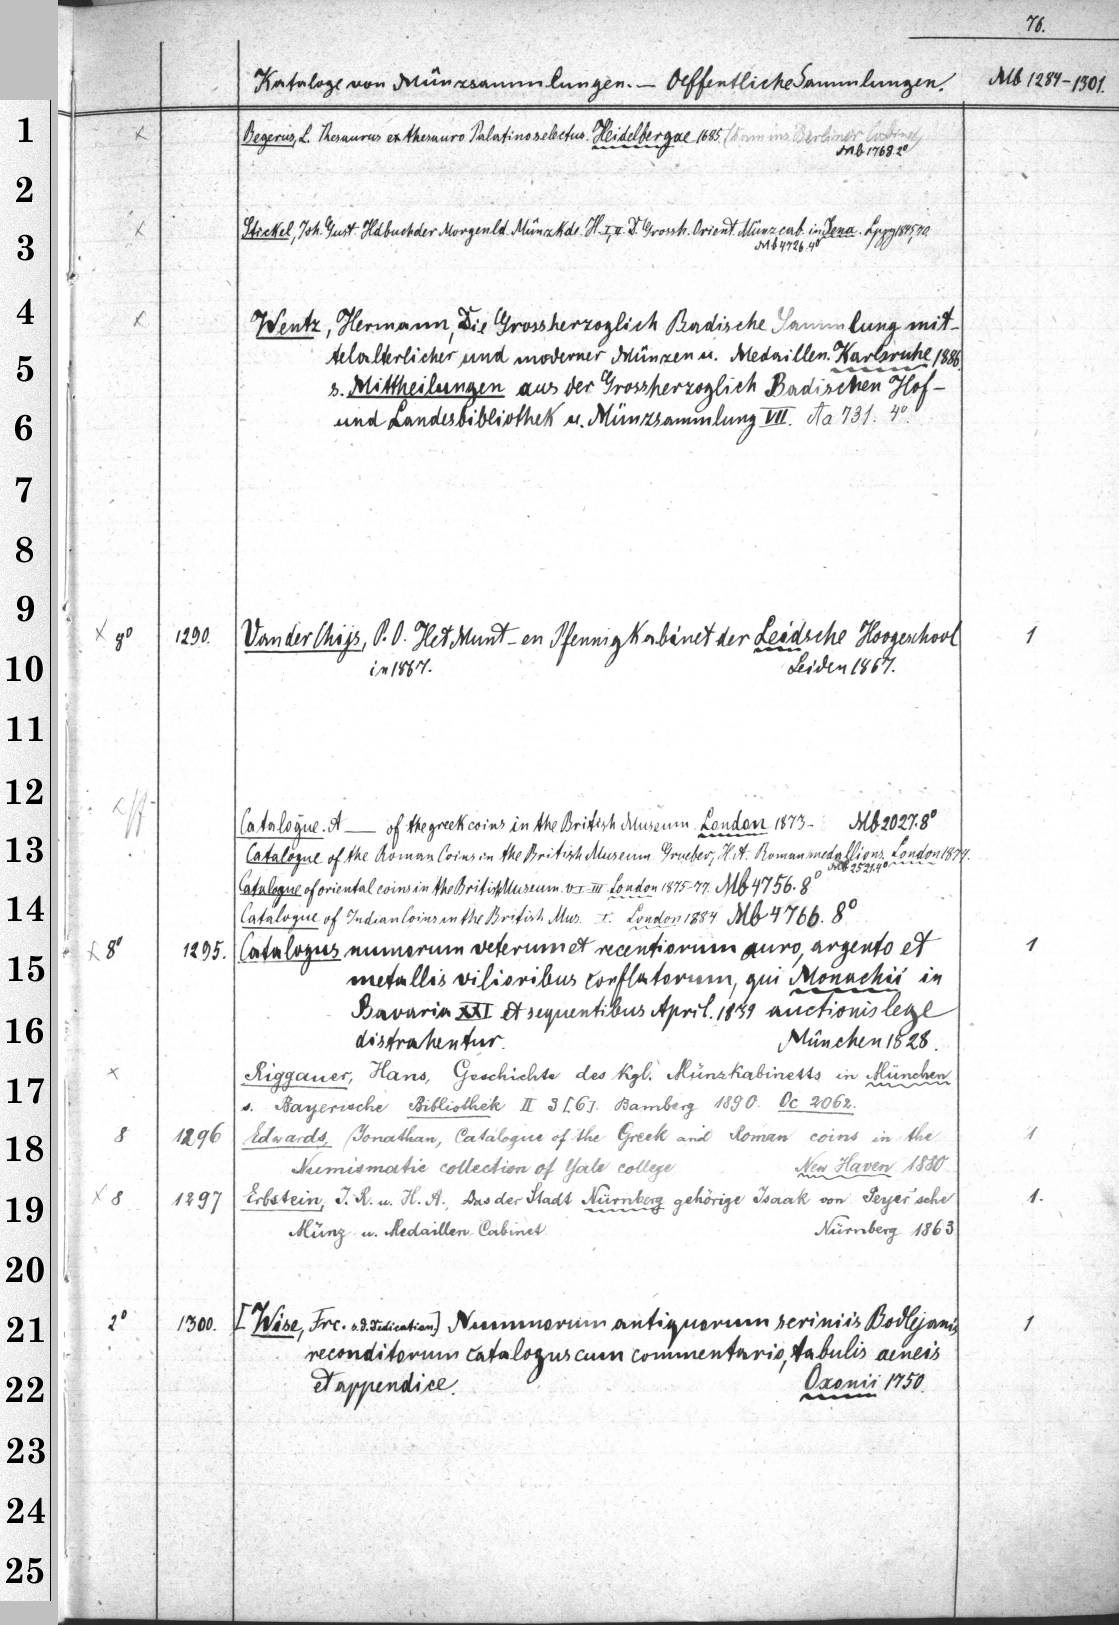 76.
Kataloge von Münzsammlungen. — Oeffentliche Sammlungen. Mb 1284-1301.
1
x Begerus, L. Thesaurus ex thesauro Palatino selectus. Heidelbergae 1685. (kam ins Berliner Cabinet)
Mb 1768. 2°
2
x Stickel, Joh. Gust. Hdbuch der Morgenld. Münzkde. H. I, II. D. Grossh. Orient. Münzcab. in Jena. Lpzg 1845, 70.
3
Mb 4726. 4°
4
x Wentz, Hermann, Die Grossherzoglich Badische Sammlung mit-
telalterlicher und moderner Münzen u. Medaillen. Karlsruhe 1886.
5
s. Mittheilungen aus der Grossherzoglich Badischen Hof-
und Landesbibliothek u. Münzsammlung VII. Aa 731. 4°.
6
7
8
9
x 8° 1290. Van der Chijs, P. O. Het Munt- en Pfennigkabinet der Leidsche Hoogeschool 1
10
in 1867. Leiden 1867.
11
12
x
Catalogue. A — of the greek coins in the British Museum London 1873- Mb 2027. 8°
13
Catalogue of the Roman Coins in the British Museum. Grueber, H. A. Roman medallions. London 1874.
Mb 2521. 4°
Catalogue of oriental coins in the British Museum. v I-III London 1875-77. Mb 4756. 8°
14
Catalogue of Indian Coins in the British Mus. I. London 1884 Mb 4766. 8°
x 8° 1295. Catalogus numorum veterum et recentiorum auro, argento et 1
15
metallis vilioribus conflatorum, qui Monachii in
Bavaria XXI et sequentibus April. 1839 auctionis lege
16
distrahentur. München 1828.
x Riggauer, Hans, Geschichte des Kgl. Münzkabinetts in München
17
s. Bayerische Bibliothek II 3 [6]. Bamberg 1890. Oc 2062.
8 1296 Edwards, Jonathan, Catalogue of the Greek and Roman coins in the 1
18
Numismatic collection of Yale college New Haven 1880
x 8 1297 Erbstein, J. R. u. H. A., Das der Stadt Nürnberg gehörige Isaak von Peyer'sche 1.
19
Münz- u. Medaillen-Cabinet Nürnberg 1863
20
2° 1300. [Wise, Frc. s. d. Dedication] Nummorum antiquorum scriniis Bodlejanis 1
21
reconditorum catalogus cum commentario, tabulis aeneis
et appendice. Oxonii 1750.
22
23
24
25